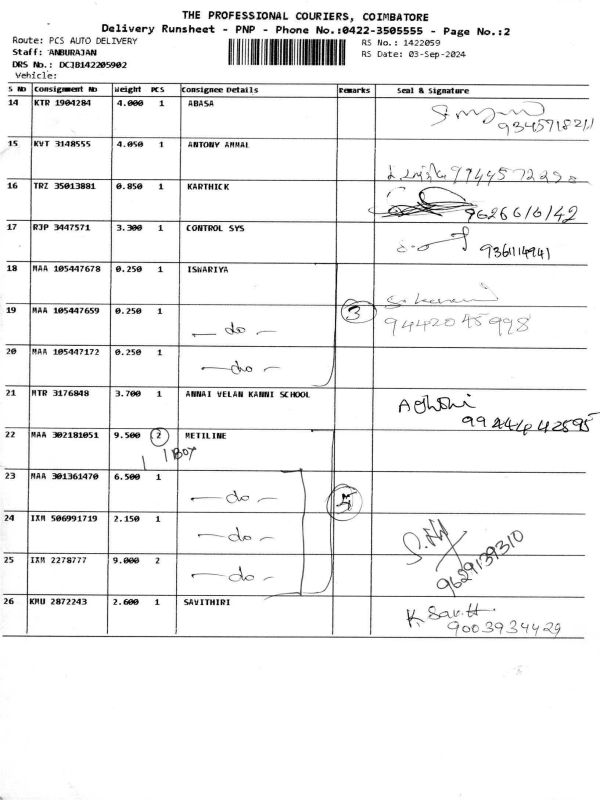 THE PROFESSIONAL COURIERS, COIMBATORE
Delivery Runsheet - PNP - Phone No.:0422-3505555 - Page No.:2
Route: PCS AUTO DELIVERY
RS No.: 1422059
Staff: ANBURAJAN
RS Date: 03-Sep-2024
DRS No.: DCJB142205902
Vehicle:
S No Consignment No Weight PCS Consignee Details Remarks Seal & Signature
14 KTR 1904284 4.000 1 ABASA
15 KVT 3148555 4.050 1 ANTONY AMMAL
16 TRZ 35013881 0.850 1 KARTHICK
9626616142
17 RJP 3447571 3.300 1 CONTROL SYS
9361114941
18 MAA 105447678 0.250 1 ISWARIYA
19 MAA 105447659 0.250 1 - do - 3
9442045998
20 MAA 105447172 0.250 1 - do -
21 MTR 3176848 3.700 1 ANNAI VELAN KANNI SCHOOL
22 MAA 302181051 9.500 2 METILINE
1 1 BOX
23 MAA 301361470 6.500 1 - do - 5
24 IXM 506991719 2.150 1 - do -
25 IXM 2278777 9.000 2 - do -
9629139310
26 KMU 2872243 2.600 1 SAVITHIRI
9003934429